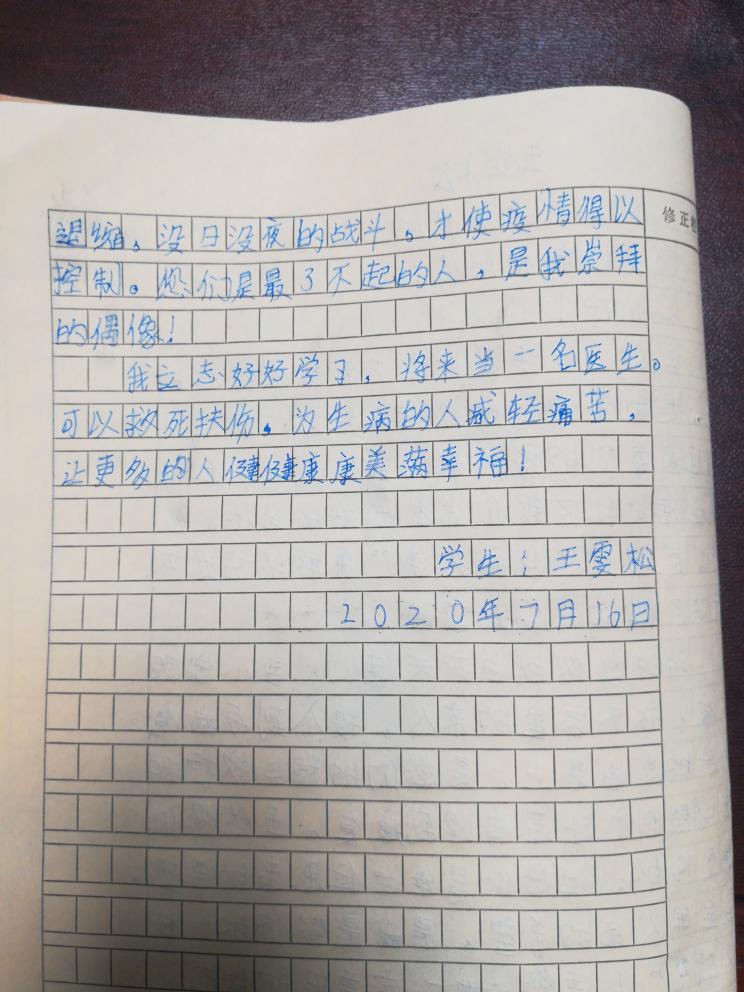 退缩，没日没夜的战斗，才使疫情得以
修正
控制。您们是最了不起的人，是我崇拜
的偶像！
我立志好好学习，将来当一名医生。
可以救死扶伤，为生病的人减轻痛苦，
让更多的人健健康康美满幸福！
学生：王雯松
2020年7月16日